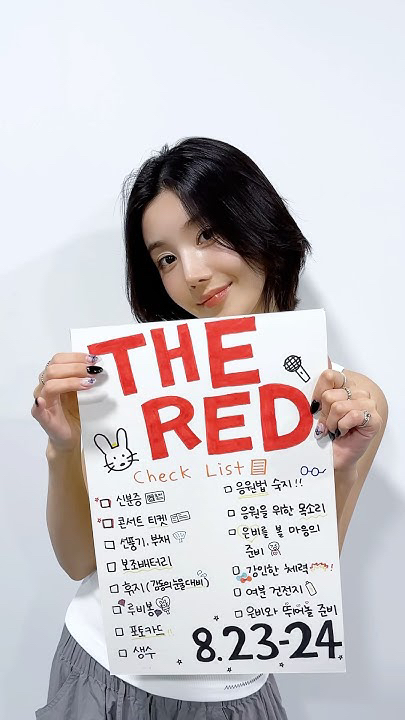 THE
RED
Check List
신분증
콘서트 티켓
선풍기, 부채
보조배터리
휴지 (감동의 눈물 대비)
루비봉
포토카드
생수
응원법 숙지!!
응원을 위한 목소리
은비를 볼 마음의
준비
강인한 체력
여분 건전지
은비와 뛰어놀 준비
8.23-24